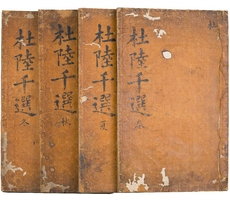 杜陸千選 春
杜陸千選 夏
杜陸千選 秋
杜陸千選 冬